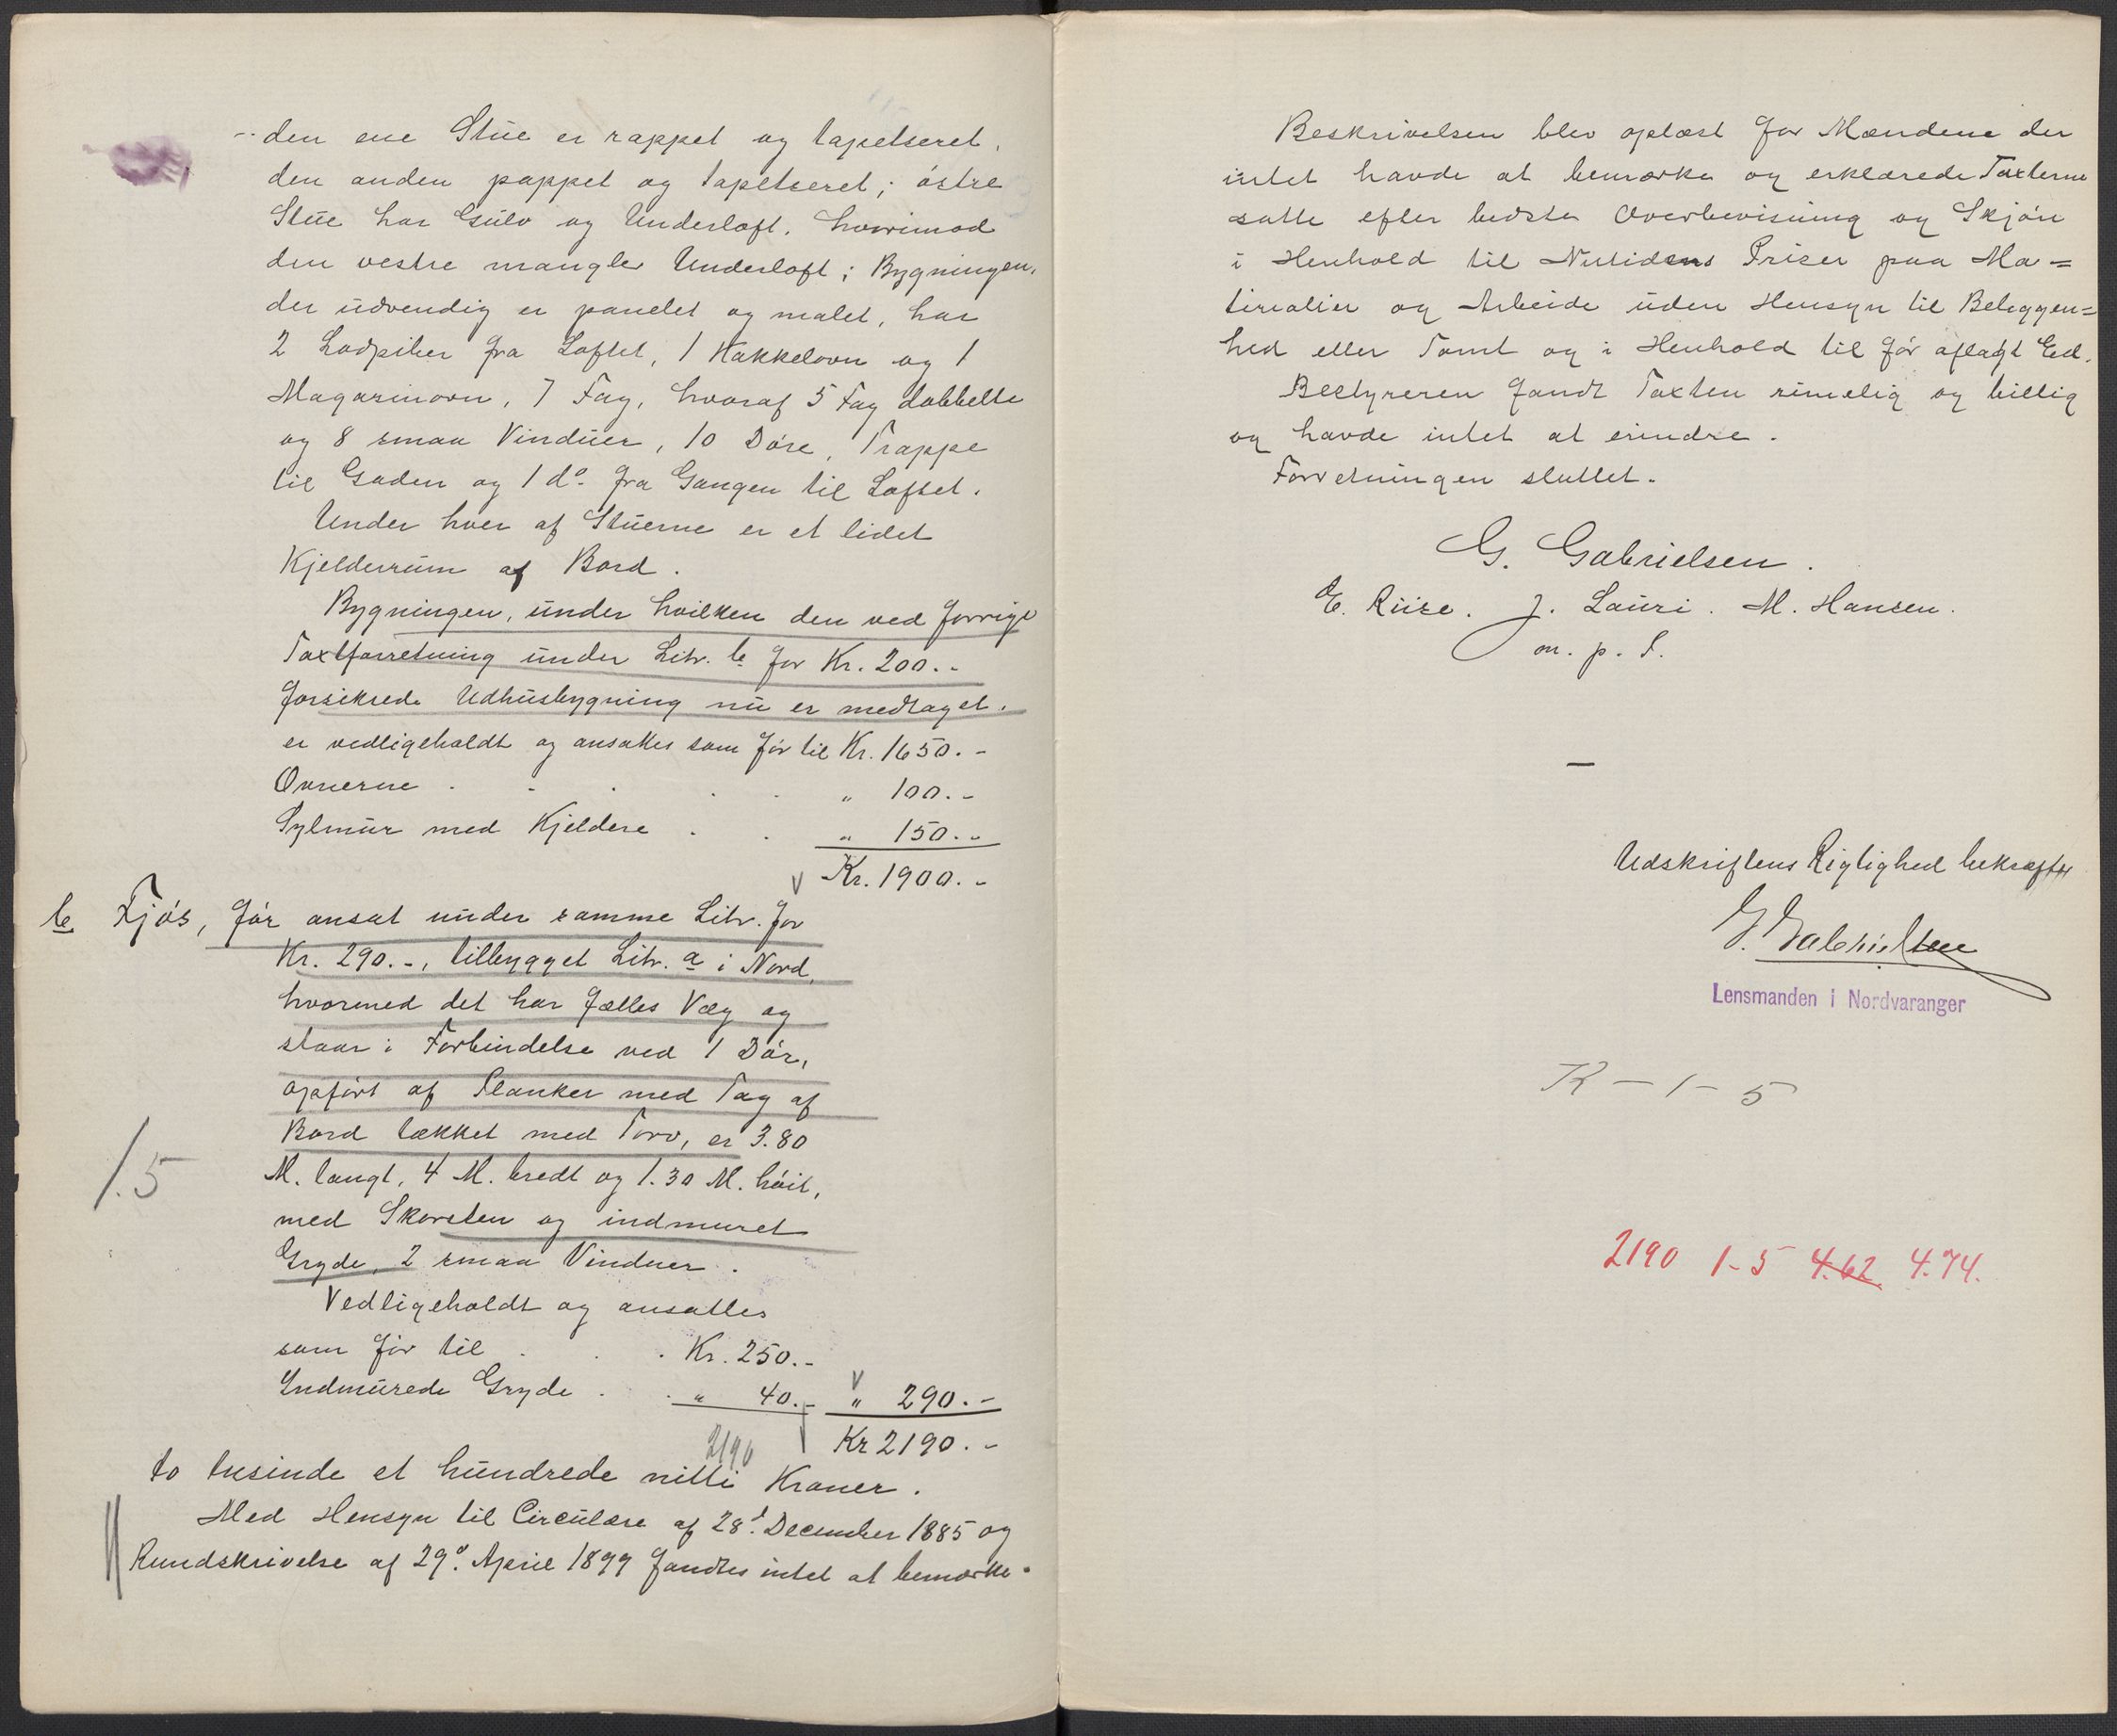 den ene Stue er rappet og tapetseret,
den anden pappet og tapetseret; østre
Stue har Gulv og Underloft, hvorimod
den vestre mangler Underloft; Bygningen,
der udvendig er panelet og malet, har
2 Lodpiber fra Loftet, 1 Kakkelovn og 1
Magasinovn, 7 Fag, hvoraf 5 Fag dobbelte
og 8 smaa Vinduer, 10 Døre, Trappe
til Gaden og 1 do. fra Gangen til Loftet.
Under hver af Stuerne er et lidet
Kjelderrum af Bord.
Bygningen, under hvilken den ved forrige
Taxtforretning under Litr. b for Kr. 200.-
forsikrede Udhusbygning nu er medtaget.
er vedligeholdt og ansattes som før til Kr. 1650.-
Ovnerne . . . . . " 100.-
Sylmur med Kjeldere . . " 150.-
Kr. 1900.-
b Fjøs, før ansat under samme Litr. for
Kr. 290.-, tilbygget Litr. a i Nord,
hvormed det har fælles Væg og
staar i Forbindelse ved 1 Dør,
opført af Planker med Tag af
Bord tækket med Torv, er 3.80
1.5
M. langt, 4 M. bredt og 1.30 M. høit,
med Skorsten og indmuret
Gryde, 2 smaa Vinduer.
Vedligeholdt og ansattes
som før til . . . Kr. 250.-
Indmurede Gryde . . " 40.- " 290.-
2190 Kr 2190.-
to tusinde et hundrede nitti Kroner.
Med Hensyn til Circulære af 28d. December 1885 og
Rundskrivelse af 29d. April 1899 fandtes intet at bemærke.
Beskrivelsen blev oplæst for Mændene der
intet havde at bemærke og erklærede Taxterne
satte efter bedste Overbevisning og Skjøn
i Henhold til Nutidens Priser paa Ma=
terialier og Arbeide uden Hensyn til Beliggen=
hed eller Tomt og i Henhold til før aflagt Eed.
Bestyreren fandt Taxten rimelig og billig
og havde intet at erindre.
Forretningen sluttet.
G. Gabrielsen.
E. Riise. J. Lauri. M. Hansen.
m. p. P.
—
Udskriftens Rigtighed bekræftes
G. Gabrielsen
Lensmanden i Nordvaranger
K - 1 - 5
2190 1-5 4.62 4.74.